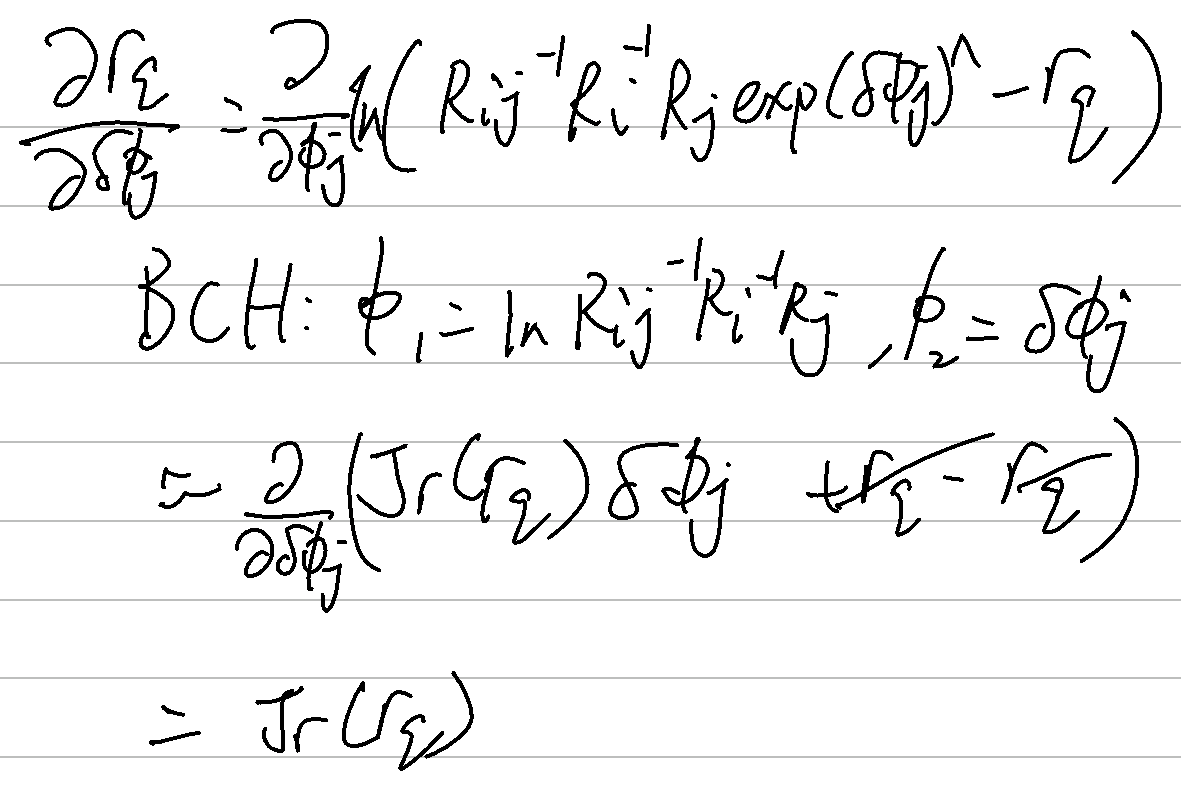 ∂r_q/∂δϕ_j = ∂/∂ϕ_j ln(R_ij^-1 R_i^-1 R_j exp(δϕ_j)^∧ - r_q)
BCH: ϕ_1 = ln R_ij^-1 R_i^-1 R_j, ϕ_2 = δϕ_j
≈ ∂/∂δϕ_j (Jr(r_q) δϕ_j + r_q - r_q)
= Jr(r_q)